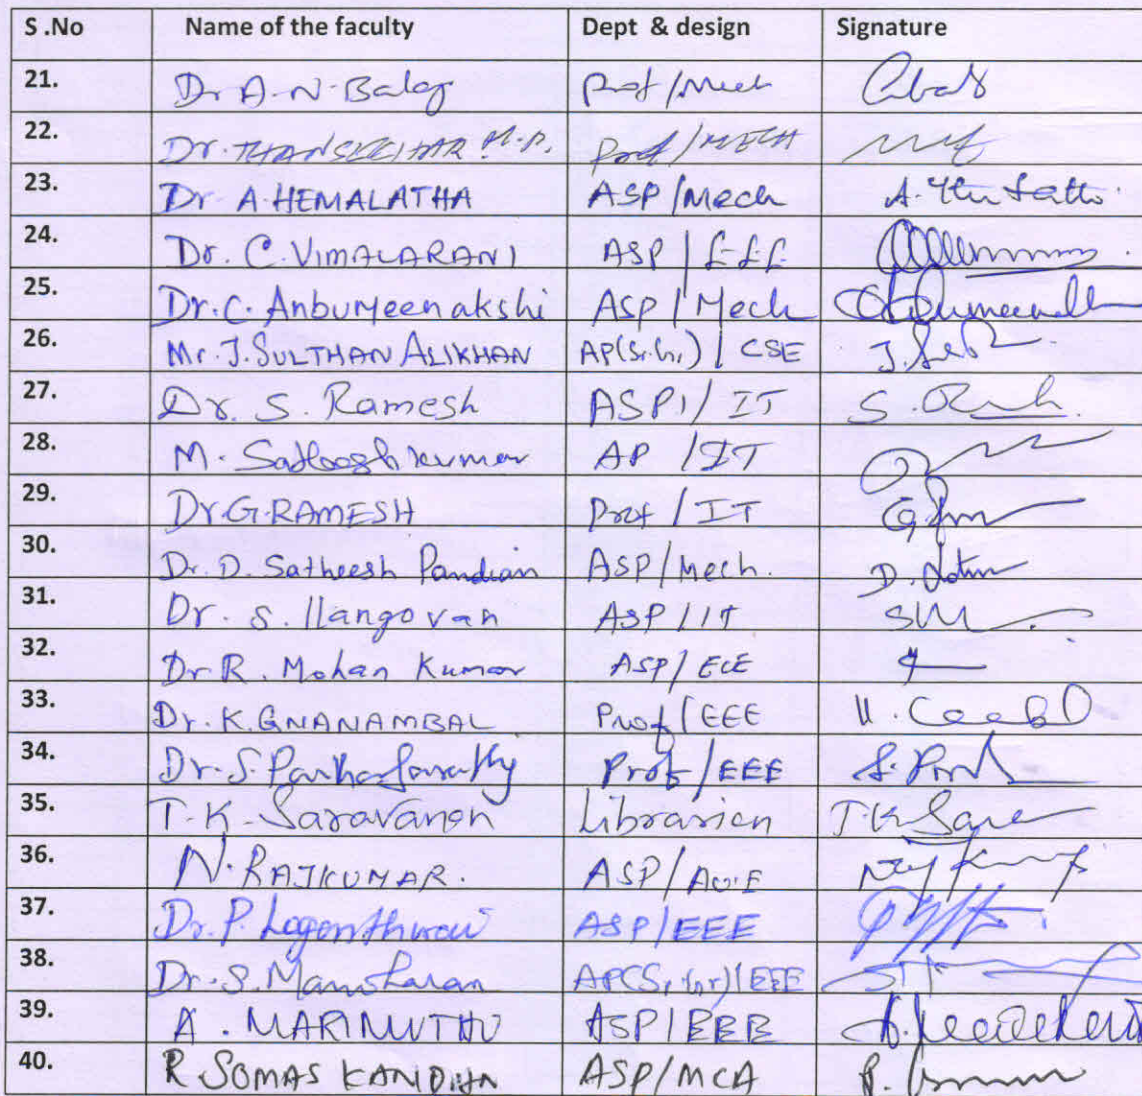 S .No Name of the faculty Dept & design Signature
21. Dr A.N. Balaj Prof/Mech
22. Dr. THANSEKHAR M.R. Prof/MECH
23. Dr A. HEMALATHA ASP/Mech
24. Dr. C. VIMALARANI ASP/EEE
25. Dr. C. Anbumeenakshi ASP/Mech
26. Mr. J. SULTHAN ALIKHAN AP(Sr.Gr.)/CSE
27. Dr. S. Ramesh ASP1/IT S.
28. M. Satheeshkumar AP/IT
29. Dr. G. RAMESH Prof/IT
30. Dr. D. Satheesh Pandian ASP/Mech. D.
31. Dr. S. Ilangovan ASP/IT
32. Dr R. Mohan Kumar ASP/ECE
33. Dr. K. GNANAMBAL Prof/EEE
34. Dr. S. Parthasarathy Prof/EEE
35. T.K. Saravanan Librarian T.K.
36. N. RAJKUMAR. ASP/AU.E
37. Dr. P. Loganthurai ASP/EEE
38. Dr. S. Manoharan AP(Sr.Gr)/EEE
39. A. MARIMUTHU ASP/EEE
40. R SOMASKANDAN ASP/MCA